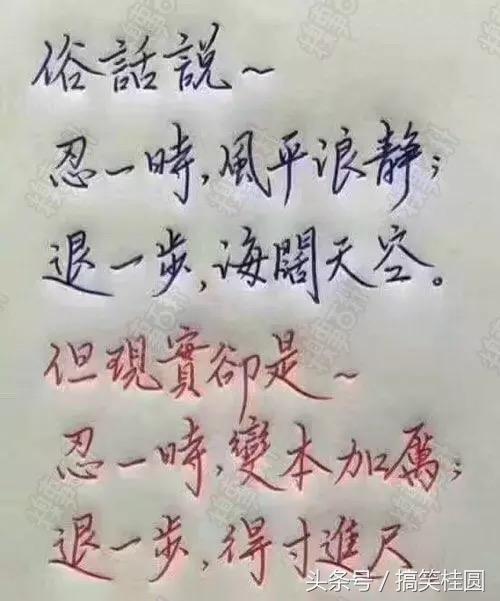 俗話説~
忍一時,風平浪靜;
退一步,海闊天空。
但現實卻是~
忍一時,變本加厲;
退一步,得寸進尺
头条号 / 搞笑桂圆